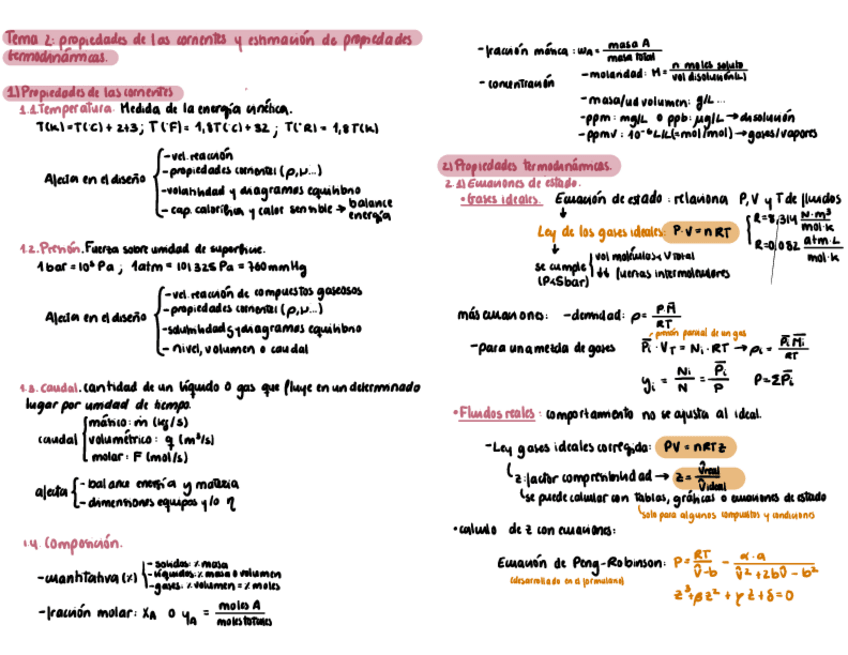 Tema 2: propiedades de las corrientes y estimación de propiedades
termodinámicas.
1) Propiedades de las corrientes
1.1. Temperatura. Medida de la energía cinética.
T(K)=T(ºC) + 273; T(ºF) = 1,8T(ºC) + 32; T(ºR) = 1,8T(K)
Afecta en el diseño
- vel. reacción
- propiedades corriente (ρ, μ...)
- volatilidad y diagramas equilibrio
- cap. calorífica y calor sensible → balance
energía
1.2. Presión. Fuerza sobre unidad de superficie.
1 bar = 10⁵ Pa ; 1 atm = 101325 Pa = 760 mmHg
Afecta en el diseño
- vel. reacción de compuestos gaseosos
- propiedades corriente (ρ, μ...)
- solubilidades y diagramas equilibrio
- nivel, volumen o caudal
1.3. Caudal. cantidad de un líquido o gas que fluye en un determinado
lugar por unidad de tiempo.
caudal
másico: ṁ (kg/s)
volumétrico: q (m³/s)
molar: F (mol/s)
afecta
- balance energía y materia
- dimensiones equipos y/o η
1.4. Composición.
- cuantitativa (%)
- solidos: % masa
- líquidos: % masa o volumen
- gases: % volumen = % moles
- fracción molar: xA o yA = moles A / moles totales
- fracción másica: ωA = masa A / masa total
- concentración
- molaridad: M = n moles soluto / vol disolución (L)
- masa/ud volumen: g/L ...
- ppm: mg/L o ppb: μg/L → disolución
- ppmv: 10⁻⁶ L/L (=mol/mol) → gases/vapores
2) Propiedades termodinámicas.
2.1) Ecuaciones de estado.
• Gases ideales. Ecuación de estado: relaciona P, V y T de fluidos
Ley de los gases ideales: P·V = nRT
R = 8,314 N·m³ / mol·K
R = 0,082 atm·L / mol·K
se cumple
(P<5bar)
vol moléculas < V total
↓↓ fuerzas intermoleculares
más ecuaciones: - densidad: ρ = P M̄ / RT
presión parcial de un gas
- para una mezcla de gases P̄i · VT = Ni · RT → ρi = P̄i M̄i / RT
yi = Ni / N = P̄i / P P = ΣP̄i
• Fluidos reales: comportamiento no se ajusta al ideal.
- Ley gases ideales corregida: PV = nRTz
z: factor compresibilidad → z = v̂real / v̂ideal
se puede calcular con tablas, gráficas o ecuaciones de estado
solo para algunos compuestos y condiciones
• calculo de z con ecuaciones:
Ecuación de Peng-Robinson: P = RT / v̂-b - α·a / v̂²+2bv̂-b²
(desarrollado en el formulario)
z³+βz²+γz+δ=0